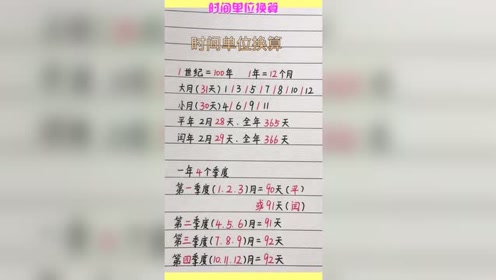 时间单位换算
时间单位换算
1世纪=100年 1年=12个月
大月(31天)1/3/5/7/8/10/12
小月(30天)4/6/9/11
平年2月28天.全年365天
闰年2月29天.全年366天
一年4个季度
第一季度(1.2.3)月=90天(平)
或91天(闰)
第二季度(4.5.6)月=91天
第三季度(7.8.9)月=92天
第四季度(10.11.12)月=92天